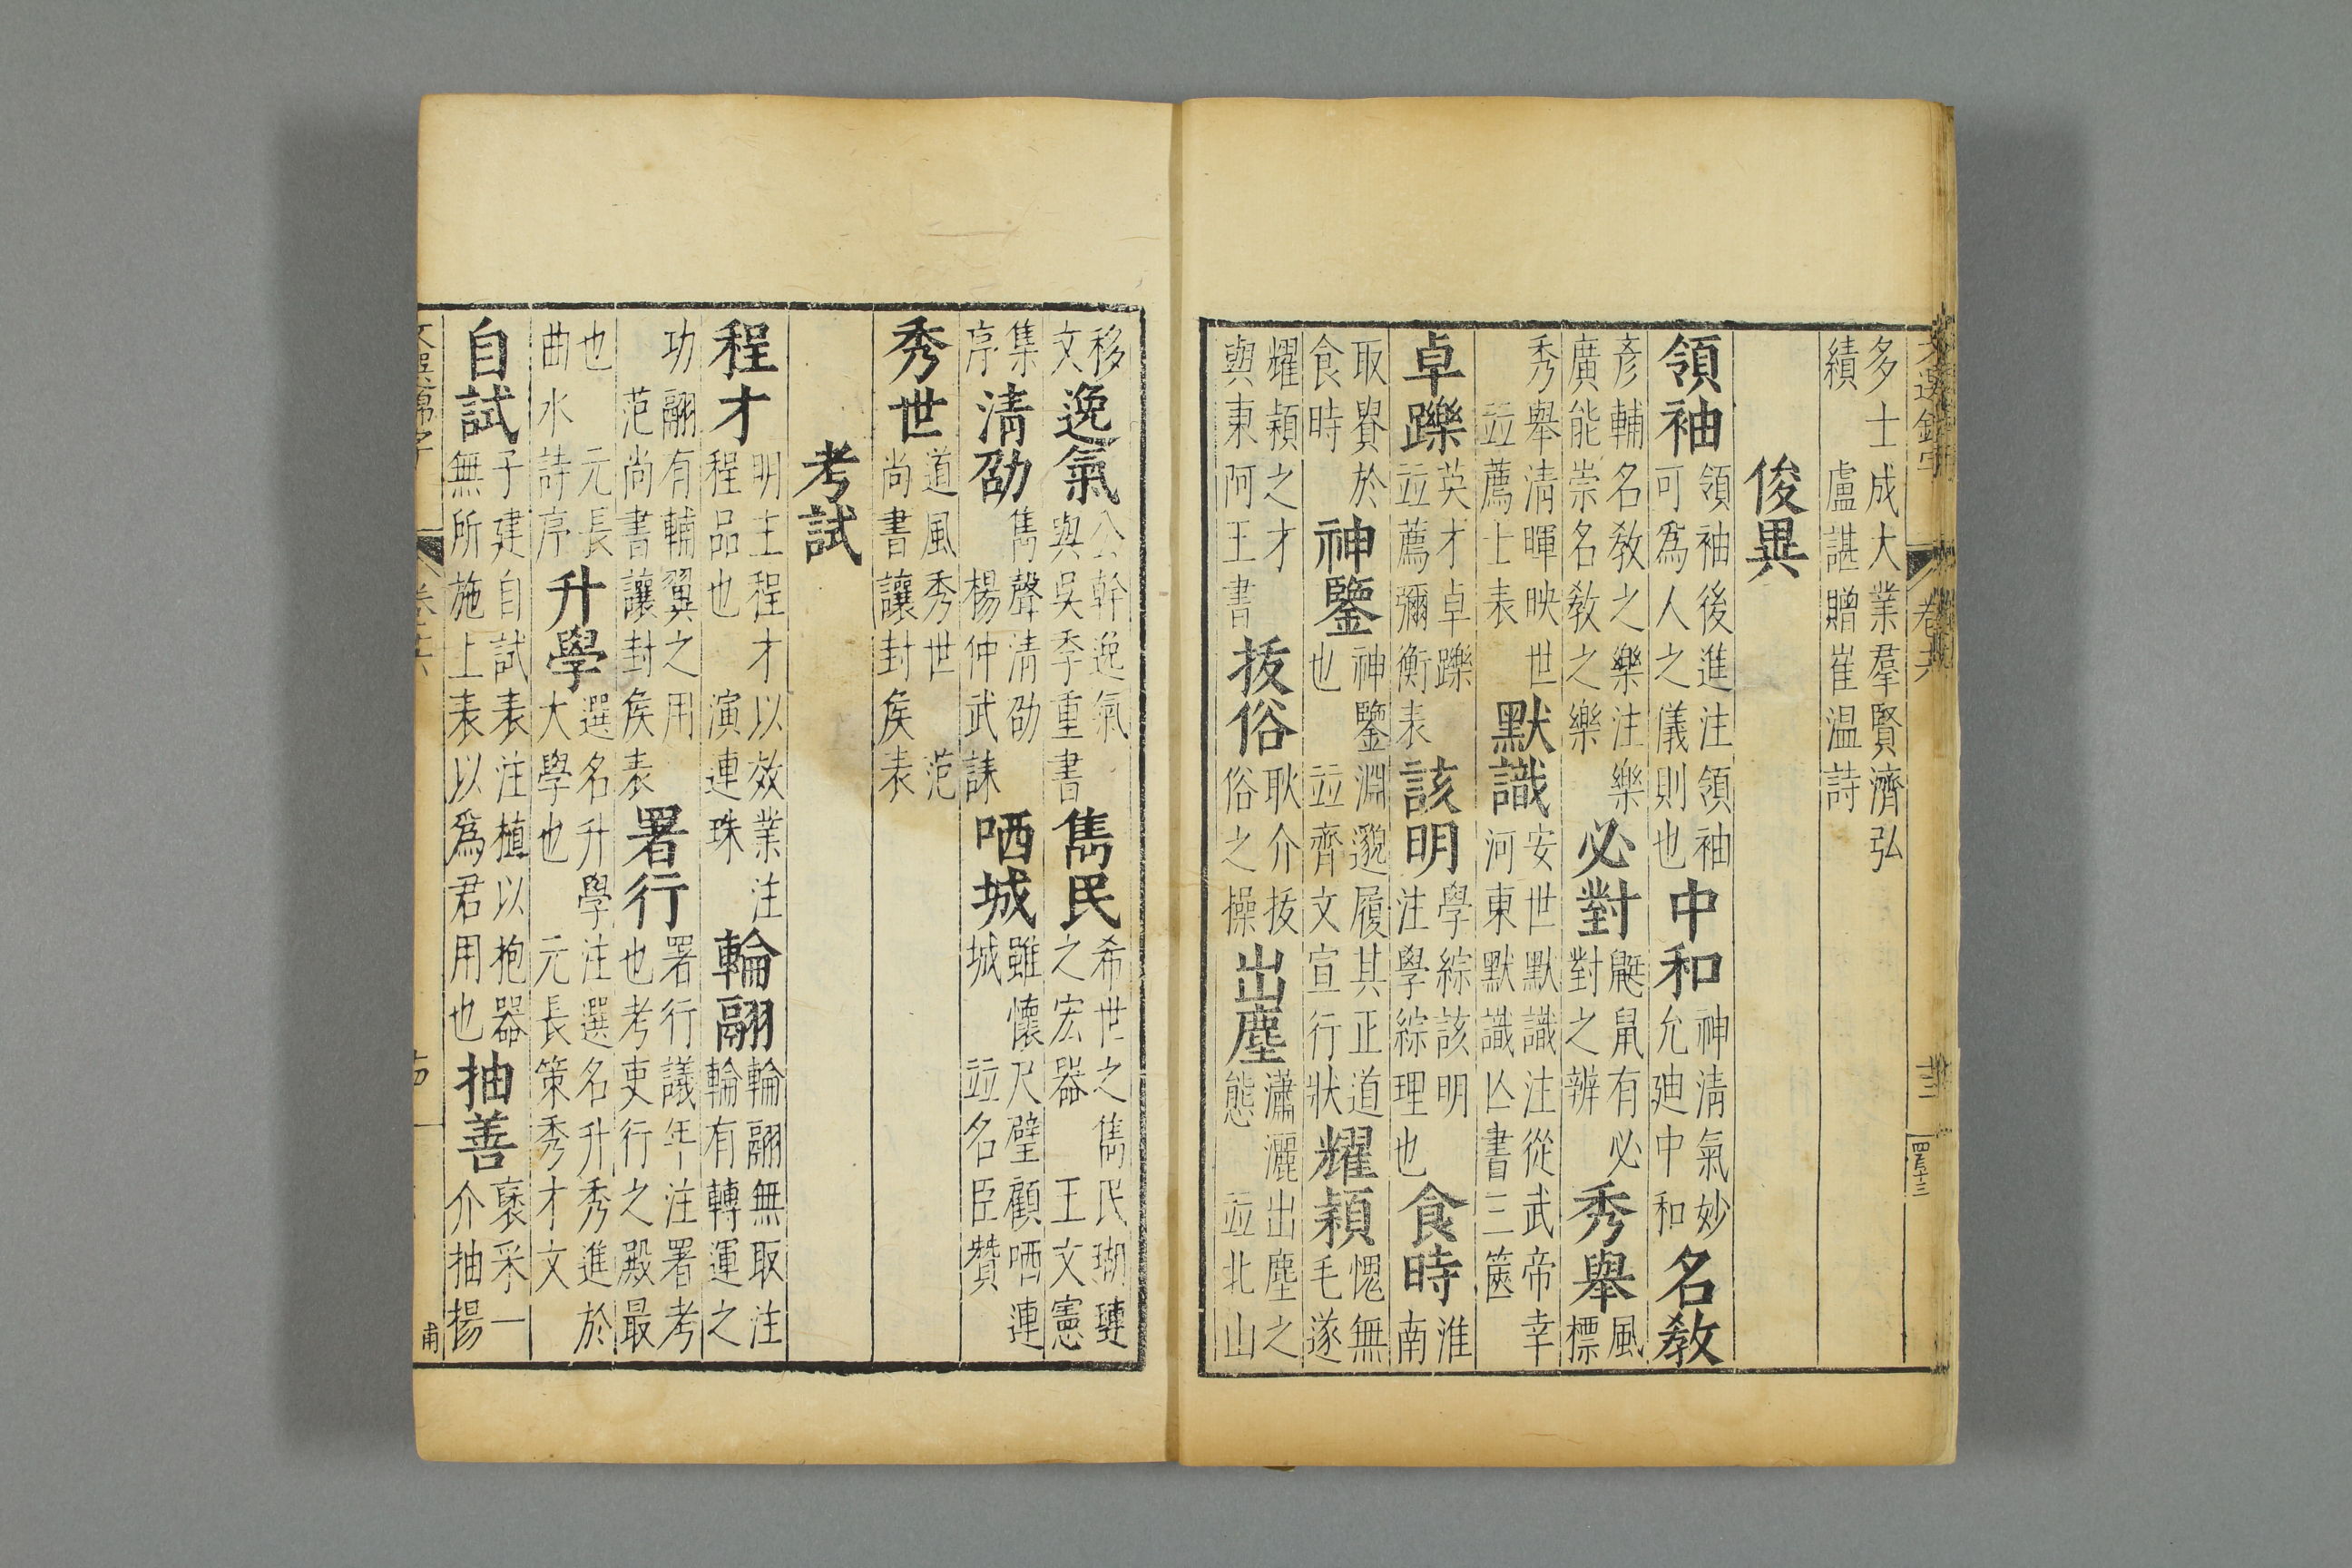 文選錦字 卷六
多士成大業羣賢濟弘績 盧諶贈崔温詩
俊異
領袖領袖後進注領袖可為人之儀則也中和神淸氣妙允廸中和名敎
彥輔名敎之樂注樂廣能崇名敎之樂必對鼮鼠有必對之辨秀舉風標
秀舉淸暉映世竝薦士表默識安世默識注從武帝幸河東默識亾書三篋
卓躒英才卓躒竝薦彌衡表該明學綜該明注學綜理也食時淮南
取貴於食時神鑒神鑒淵邈履其正道也 竝齊文宣行狀耀穎愧無毛遂
耀穎之才與東阿王書拔俗耿介拔俗之操出塵瀟灑出塵之態 竝北山
移文逸氣公幹逸氣與吳季重書雋民希世之雋民瑚璉之宏器 王文憲
集序淸劭雋聲淸劭 楊仲武誄哂城雖懷尺璧顧哂連城 竝名臣贊
秀世道風秀世 范尚書讓封矦表
考試
程才明主程才以效業注程品也 演連珠輪翮輪翮無取注輪有轉運之
功翮有輔翼之用 范尚書讓封矦表署行署行議年注署考也考吏行之殿最
也 元長曲水詩序升學選名升學注選名升秀進於大學也 元長策秀才文
自試子建自試表注植以抱器無所施上表以爲君用也抽善褒采一介抽揚
甫